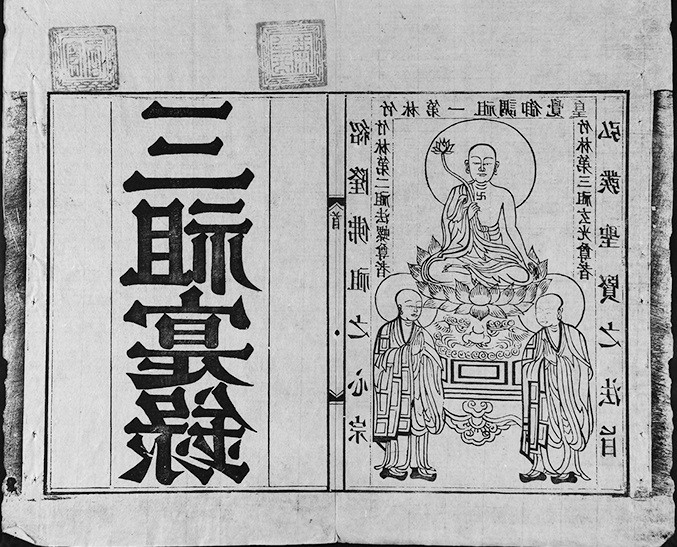 三祖寔錄
首
紹隆佛祖之心宗
竹林第一祖調御覺皇
竹林第二祖法螺尊者
竹林第三祖玄光尊者
弘發聖賢之法旨